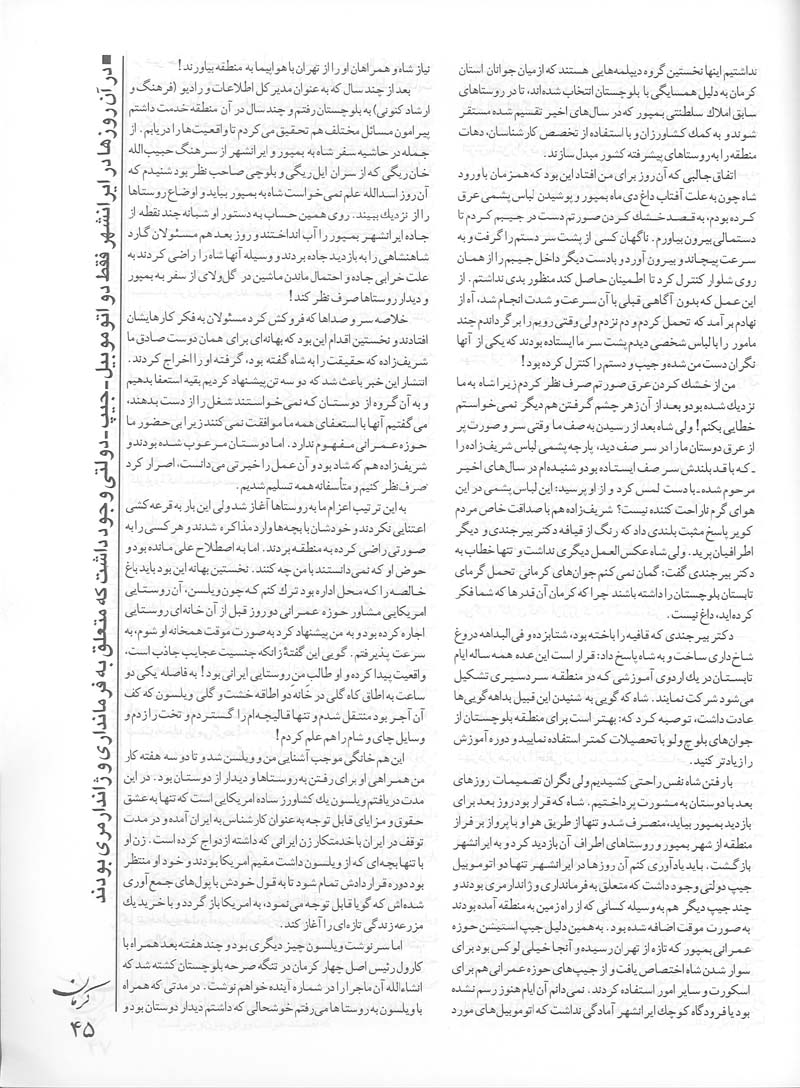 نداشتیم اینها نخستین گروه دیپلمه‌هایی هستند که از میان جوانان استان
کرمان به دلیل همسایگی با بلوچستان انتخاب شده‌اند، تا در روستاهای
سابق املاك سلطنتی بمپور که در سال‌های اخیر تقسیم شده مستقر
شوند و به کمك کشاورزان و با استفاده از تخصص کارشناسان، دهات
منطقه را به روستاهای پیشرفته کشور مبدل سازند.
اتفاق جالبی که آن روز برای من افتاد این بود که همزمان با ورود
شاه چون به علت آفتاب داغ دی ماه بمپور و پوشیدن لباس پشمی عرق
کرده بودم، به قصد خشك کردن صورتم دست در جیبم کردم تا
دستمالی بیرون بیاورم. ناگهان کسی از پشت سر دستم را گرفت و به
سرعت پیچاند و بیرون آورد و با دست دیگر داخل جیبم را از همان
روی شلوار کنترل کرد تا اطمینان حاصل کند منظور بدی نداشتم. از
این عمل که بدون آگاهی قبلی با آن سرعت و شدت انجام شد، آه از
نهادم برآمد که تحمل کردم و دم نزدم ولی وقتی رویم را برگرداندم چند
مامور را با لباس شخصی دیدم پشت سر ما ایستاده بودند که یکی از آنها
نگران دست من شده و جیپ و دستم را کنترل کرده بود!
من از خشك کردن عرق صورتم صرف نظر کردم زیرا شاه به ما
نزدیك شده بود و بعد از آن زهر چشم گرفتن هم دیگر نمی‌خواستم
خطایی بکنم! ولی شاه بعد از رسیدن به صف ما وقتی سر و صورت پر
از عرق دوستان ما را در سر صف دید، پارچه پشمی لباس شریف‌زاده را
ـ که با قد بلندش سر صف ایستاده بود و شنیده‌ام در سال‌های اخیر
مرحوم شده ـ با دست لمس کرد و از او پرسید: این لباس پشمی در این
هوای گرم ناراحت کننده نیست؟ شریف‌زاده هم با صداقت خاص مردم
کویر پاسخ مثبت بلندی داد که رنگ از قیافه دکتر بیرجندی و دیگر
اطرافیان پرید. ولی شاه عکس العمل دیگری نداشت و تنها خطاب به
دکتر بیرجندی گفت: گمان نمی کنم جوان‌های کرمانی تحمل گرمای
تابستان بلوچستان را داشته باشند چرا که کرمان آن قدرها که شما فکر
کرده‌اید، داغ نیست.
دکتر بیرجندی که قافیه را باخته بود، شتابزده و فی البداهه دروغ
شاخ داری ساخت و به شاه پاسخ داد: قرار است این عده همه ساله ایام
تابستان در یك اردوی آموزشی که در منطقه سردسیری تشکیل
می‌شود شرکت نمایند. شاه که گویی به شنیدن این قبیل بداهه‌گویی‌ها
عادت داشت، توصیه کرد که: بهتر است برای منطقه بلوچستان از
جوان‌های بلوچ ولو با تحصیلات کمتر استفاده نمایید و دوره آموزش
را زیادتر کنید.
با رفتن شاه نفس راحتی کشیدیم ولی نگران تصمیمات روزهای
بعد با دوستان به مشورت پرداختیم. شاه که قرار بود روز بعد برای
بازدید بمپور بیاید، منصرف شد و تنها از طریق هوا و با پرواز بر فراز
منطقه از شهر بمپور و روستاهای اطراف آن بازدید کرد و به ایرانشهر
بازگشت. باید یادآوری کنم آن روزها در ایرانشهر تنها دو اتوموبیل
جیپ دولتی وجود داشت که متعلق به فرمانداری و ژاندارمری بودند و
چند جیپ دیگر هم به وسیله کسانی که از راه زمین به منطقه آمده بودند
به صورت موقت اضافه شده بود. به همین دلیل جیپ استیشن حوزه
عمرانی بمپور که تازه از تهران رسیده و آنجا خیلی لوکس بود برای
سوار شدن شاه اختصاص یافت و از جیپ‌های حوزه عمرانی هم برای
اسکورت و سایر امور استفاده کردند. نمی‌دانم آن ایام هنوز رسم نشده
بود یا فرودگاه کوچك ایرانشهر آمادگی نداشت که اتوموبیل‌های مورد
نیاز شاه و همراهان او را از تهران با هواپیما به منطقه بیاورند!
بعد از چند سال که به عنوان مدیر کل اطلاعات و رادیو (فرهنگ و
ارشاد کنونی) به بلوچستان رفتم و چند سال در آن منطقه خدمت داشتم
پیرامون مسائل مختلف هم تحقیق می‌کردم تا واقعیت‌ها را دریابم. از
جمله در حاشیه سفر شاه به بمپور و ایرانشهر از سرهنگ حبیب‌الله
خان ریگی که از سران ایل ریگی و بلوچی صاحب نظر بود شنیدم که
آن روز اسدالله علم نمی خواست شاه به بمپور بیاید و اوضاع روستاها
را از نزدیك ببیند. روی همین حساب به دستور او شبانه چند نقطه از
جاده ایرانشهر بمپور را آب انداختند و روز بعد هم مسئولان گارد
شاهنشاهی را به بازدید جاده بردند و وسیله آنها شاه را راضی کردند به
علت خرابی جاده و احتمال ماندن ماشین در گل‌ولای از سفر به بمپور
و دیدار روستاها صرف نظر کند!
خلاصه سر و صداها که فروکش کرد مسئولان به فکر کارهایشان
افتادند و نخستین اقدام این بود که بهانه‌ای برای همان دوست صادق ما
شریف‌زاده که حقیقت را به شاه گفته بود، گرفته او را اخراج کردند.
انتشار این خبر باعث شد که دو سه تن پیشنهاد کردیم بقیه استعفا بدهیم
و به آن گروه از دوستان که نمی‌خواستند شغل را از دست بدهند،
می‌گفتیم آنها با استعفای همه ما موافقت نمی کنند زیرا بی حضور ما
حوزه عمرانی مفهوم ندارد. اما دوستان مرعوب شده بودند و
شریف‌زاده هم که شاد بود و آن عمل را خیرتی می‌دانست، اصرار کرد
صرف نظر کنیم و متأسفانه همه تسلیم شدیم.
به این ترتیب اعزام ما به روستاها آغاز شد ولی این بار به قرعه کشی
اعتنایی نکردند و خودشان با بچه‌ها وارد مذاکره شدند و هر کسی را به
صورتی راضی کرده به منطقه بردند. اما به اصطلاح علی مانده بود و
حوض او که نمی‌دانستند با من چه کنند. نخستین بهانه این بود باید باغ
خالصه را که محل اداره بود ترك کنم که چون ویلسن، آن روستایی
امریکایی مشاور حوزه عمرانی دو روز قبل از آن خانه‌ای روستایی
اجاره کرده بود و به من پیشنهاد کرد به صورت موقت همخانه او شوم، به
سرعت پذیرفتم. گویی این گفتهٔ زانکه جنسیت عجایب جاذب است،
واقعیت پیدا کرده و او طالب من روستایی ایرانی بود! به فاصله یکی دو
ساعت به اطاق کاه گلی در خانه دو اطاقه خشت و گلی ویلسون که کف
آن آجر بود منتقل شدم و تنها قالیچه‌ام را گستردم و تخت را زدم و
وسایل چای و شام را هم علم کردم!
این هم خانگی موجب آشنایی من و ویلسن شد و تا دو سه هفته کار
من همراهی او برای رفتن به روستاها و دیدار از دوستان بود. در این
مدت دریافتم ویلسون یك کشاورز ساده امریکایی است که تنها به عشق
حقوق و مزایای قابل توجه به عنوان کارشناس به ایران آمده و در مدت
توقف در ایران با خدمتکار زن ایرانی که داشته ازدواج کرده است. زن او
با تنها بچه‌ای که از ویلسون داشت مقیم امریکا بودند و خود او منتظر
بود دوره قراردادش تمام شود تا به قول خودش با پول‌های جمع آوری
شده‌اش که گویا قابل توجه می نمود، به امریکا بازگردد و با خرید یك
مزرعه زندگی تازه‌ای را آغاز کند.
اما سرنوشت ویلسون چیز دیگری بود و چند هفته بعد همراه با
کارول رئیس اصل چهار کرمان در تنگه صرحه بلوچستان کشته شد که
انشاءالله آن ماجرا را در شماره آینده خواهم نوشت. در مدتی که همراه
با ویلسون به روستاها می‌رفتم خوشحالی که داشتم دیدار دوستان بود و
■ در آن روزها در ایرانشهر فقط دو اتوموبیل ـ جیپ ـ دولتی وجود داشت که متعلق به فرمانداری و ژاندارمری بودند
کرمان
۴۵